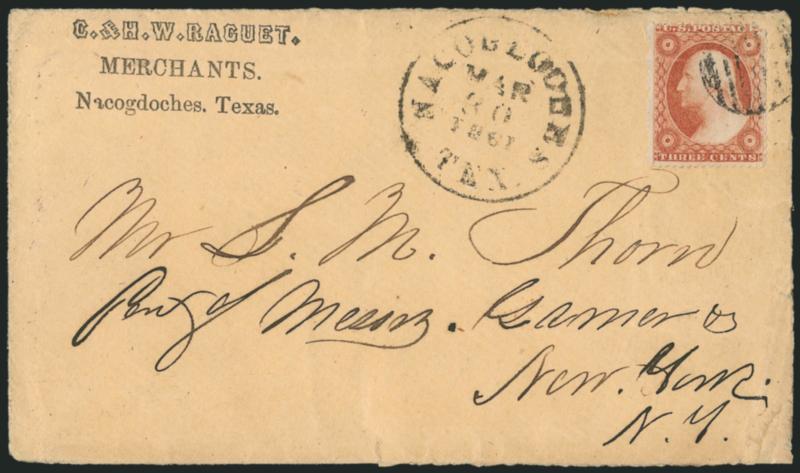 C. & H. W. RAGUET.
MERCHANTS.
Nacogdoches. Texas.
NACOGDOCHES
MAR
30
1861
TEX.
U.S. POSTAGE
THREE CENTS
Mr S. M. Thorn
of Messrs.
New. York.
N. Y.